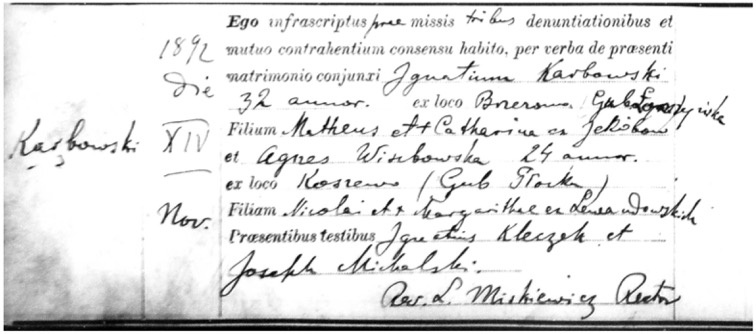 Karbowski
1892
die
XIV
Nov.
Ego infrascriptus præmissis tribus denuntiationibus et
mutuo contrahentium consensu habito, per verba de præsenti
matrimonio conjunxi Ignatium Karbowski
32 annor. ex loco Gub
Filium Matheus et Catharina ex
et Agnes Wisebowska 24 annor.
ex loco Koszewo (Gub Płocka)
Filiam Nicolai et Margarithae ex Lewandowskich
Præsentibus testibus Ignatius Kleczek et
Joseph Michalski.
Rev. L. Miskiewicz Rector